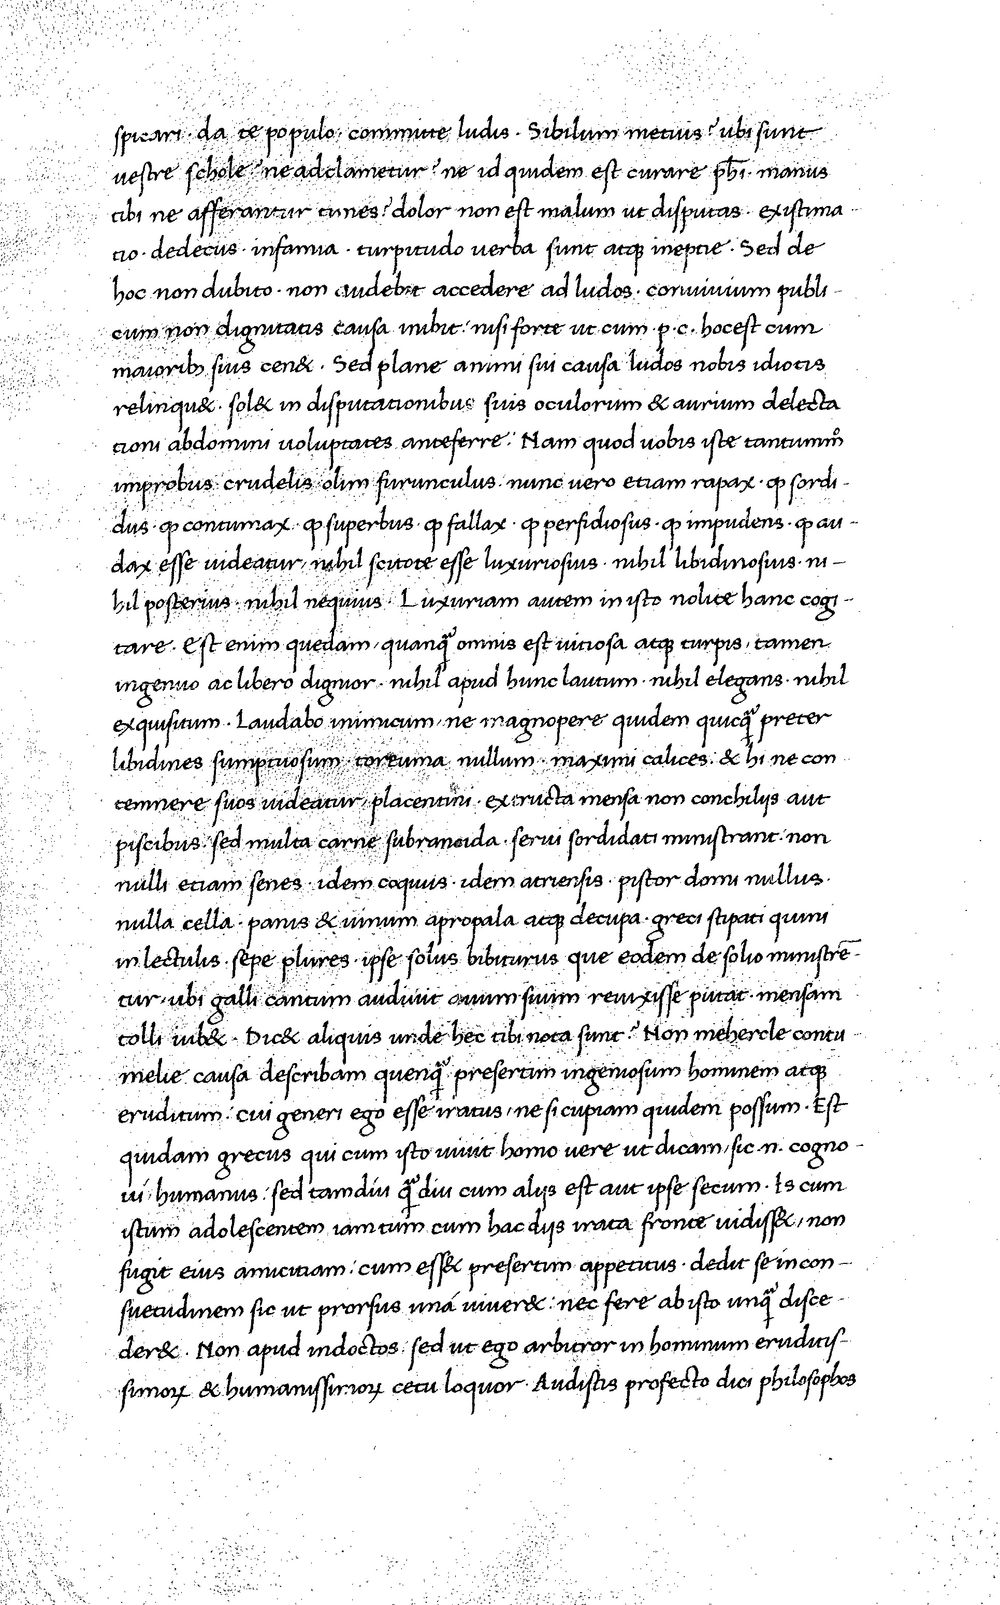 spicari · da te populo · committe ludis · Sibilum metuis? ubi sunt
uestre schole? ne adclametur? ne id quidem est curare phi̅ · manus
tibi ne afferantur times? dolor non est malum ut disputas · existima-
tio · dedecus · infamia · turpitudo uerba sunt atqꝫ ineptie · Sed de
hoc non dubito · non audebit accedere ad ludos · conuiuium publi-
cum non dignitatis causa inibit: nisi forte ut cum · p · c · hoc est cum
maioribꝫ suis cen& · Sed plane animi sui causa ludos nobis idiotis
relinqu& · sol& in disputationibus suis oculorum & aurium delecta
tioni abdomini uoluptates anteferre: Nam quod uobis iste tantummͦ
improbus · crudelis · olim furunculus · nunc uero etiam rapax · ꝙ sordi-
dus · ꝙ contumax · ꝙ superbus · ꝙ fallax · ꝙ perfidiosus · ꝙ impudens · ꝙ au-
dax esse uideatur, nihil scitote esse luxuriosius · nihil libidinosius · ni-
hil posterius · nihil nequius · Luxuriam autem in isto nolite hanc cogi-
tare · Est enim quedam, quanqᷓ omnis est uitiosa atqꝫ turpis, tamen
ingenuo ac libero dignior · nihil apud hunc lautum · nihil elegans · nihil
exquisitum · Laudabo inimicum, ne magnopere quidem quicqᷓ preter
libidines sumptuosum · toreuma nullum · maximi calices: & hi ne con
temnere suos uideatur, placentini · extructa mensa non conchilijs aut
piscibus: sed multa carne subrancida · serui sordidati ministrant: non
nulli etiam senes · idem coquus · idem atriensis · pistor domi nullus ·
nulla cella · panis & uinum apropala atqꝫ decupa · greci stipati quini
in lectulis · sepe plures · ipse solus bibiturus que eodem de solio ministre̅-
tur, ubi galli cantum audiuit auum suum reuixisse putat · mensam
tolli iub& · Dic& aliquis unde hec tibi nota sunt? Non mehercle contu-
melie causa describam quenqᷓ presertim ingeniosum hominem atqꝫ
eruditum: cui generi ego esse iratus, ne si cupiam quidem possum · Est
quidam grecus qui cum isto uiuit homo uere ut dicam, sic · n · cogno-
ui, humanus: sed tamdiu qᷓ diu cum alijs est aut ipse secum · Is cum
istum adolescentem iam tum cum hac dijs irata fronte uidiss&, non
fugit eius amicitiam: cum ess& presertim appetitus · dedit se in con-
suetudinem sic ut prorsus uná uiuer&: nec fere ab isto unqᷓ disce-
der& · Non apud indoctos: sed ut ego arbitror in hominum eruditis-
simoꝝ & humanissimoꝝ cetu loquor · Audistis profecto dici philosophos